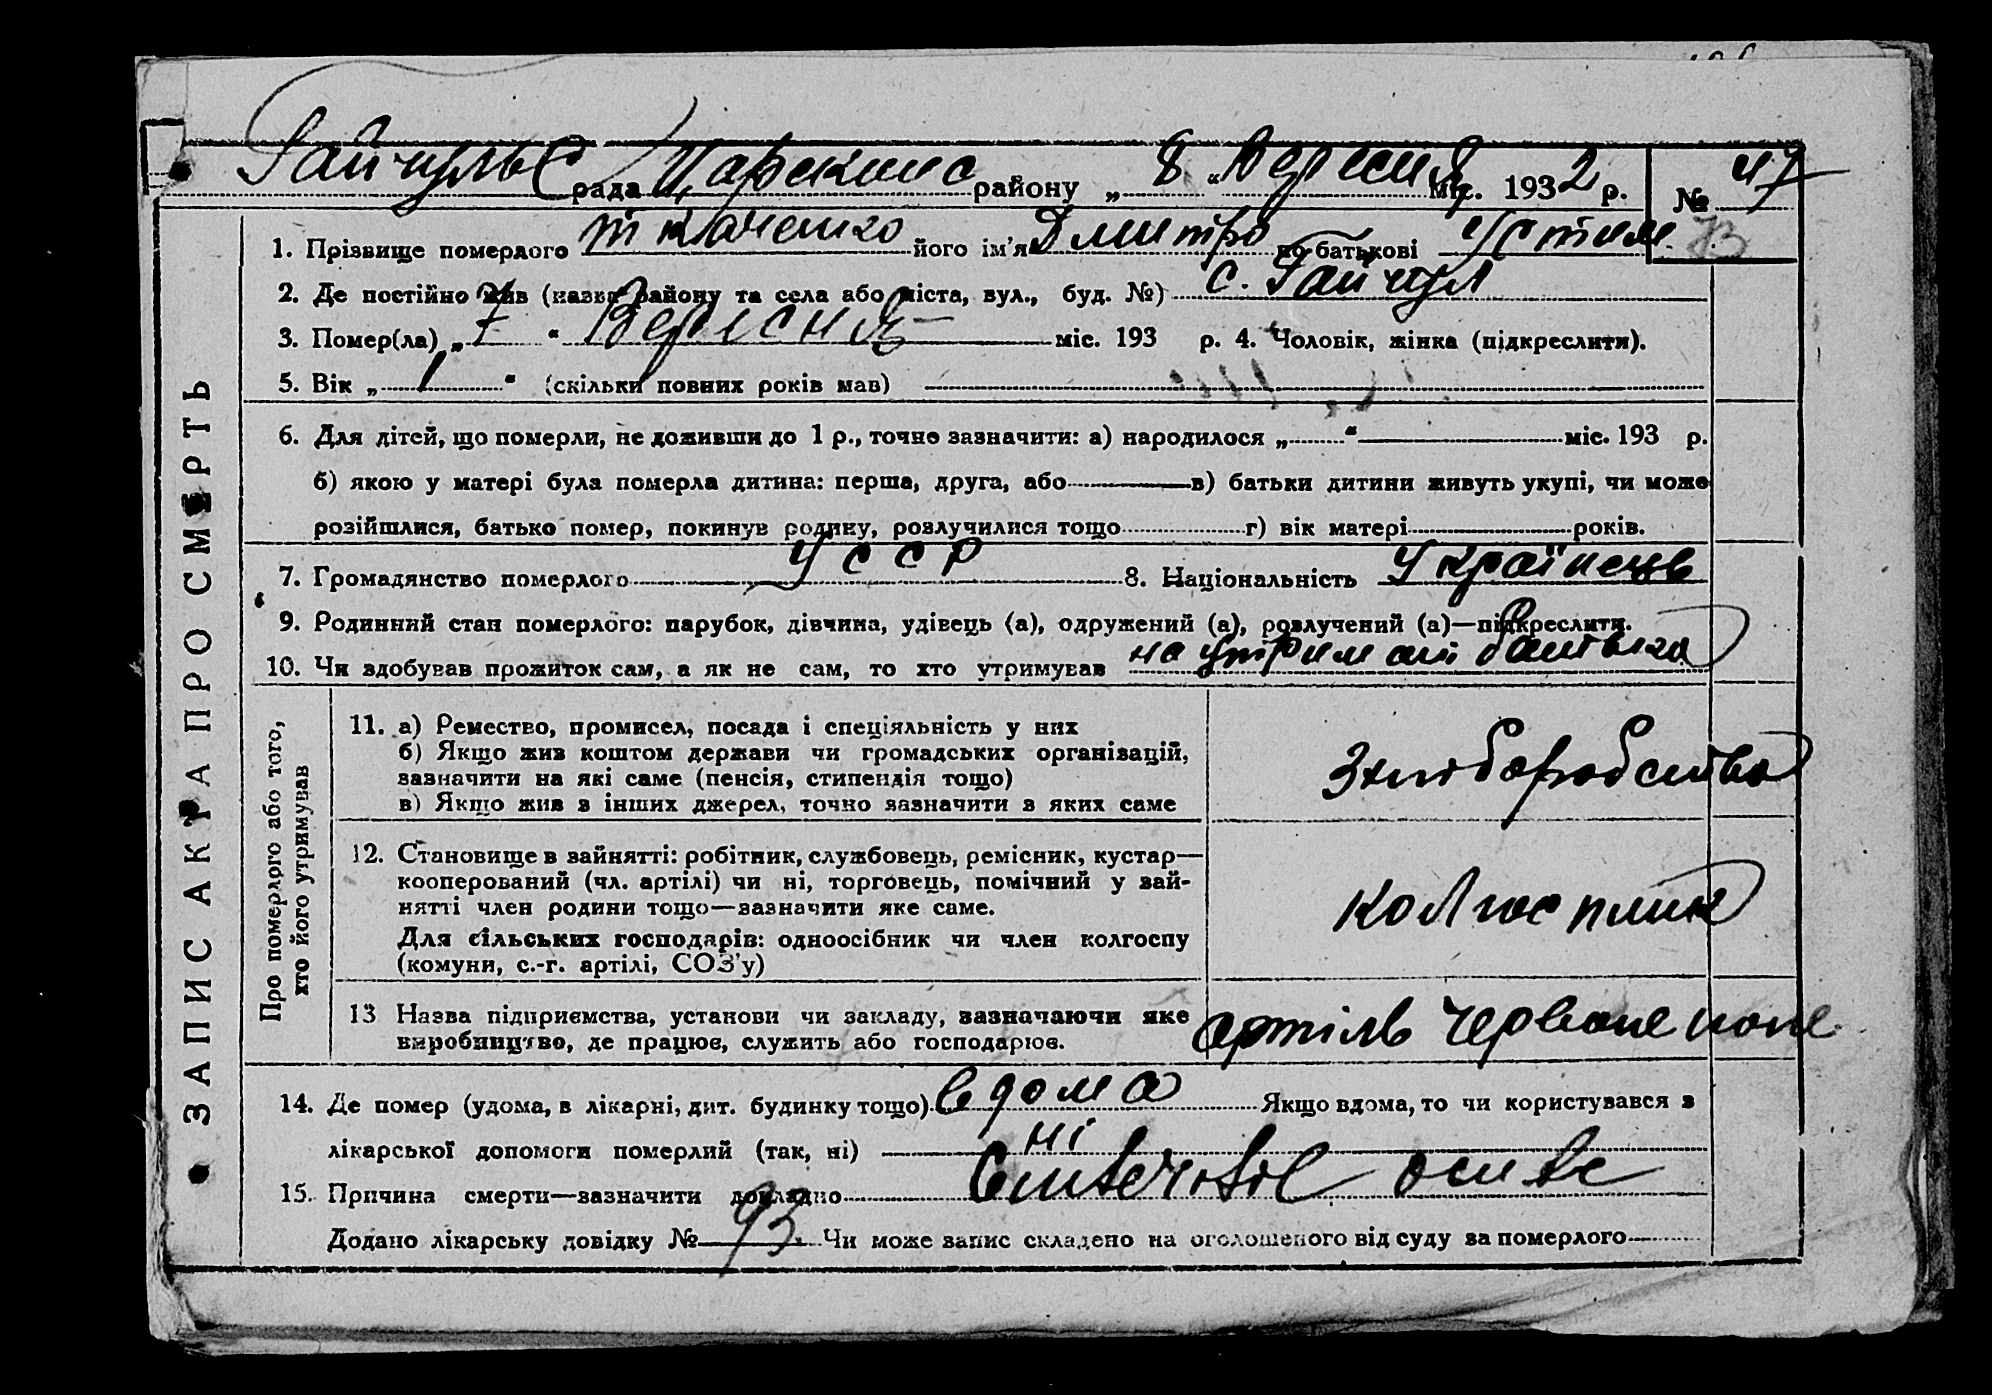 Гайчульс рада Царекинс району „ 8 “ Вересня міс. 1932 р. № 47
1. Прізвище померлого Ткаченко його ім'я Дмитро по батькові Устим. 73
2. Де постійно жив (назва району та села або міста, вул., буд. №) с. Гайчул
3. Помер(ла) „ 7 “ Вересня міс. 193 р. 4. Чоловік, жінка (підкреслити).
5. Вік „ 1 “ (скільки повних років мав)
6. Для дітей, що померли, не доживши до 1 р., точно зазначити: а) народилося „ “ міс. 193 р.
б) якою у матері була померла дитина: перша, друга, або в) батьки дитини живуть укупі, чи може
розійшлися, батько помер, покинув родину, розлучилися тощо г) вік матері років.
7. Громадянство померлого УССР 8. Національність Українець
9. Родинний стан померлого: парубок, дівчина, удівець (а), одружений (а), розлучений (а)—підкреслити.
10. Чи здобував прожиток сам, а як не сам, то хто утримував на утриман батька
ЗАПИС АКТА ПРО СМЕРТЬ
Про померлого або того,
хто його утримував
11. а) Ремество, промисел, посада і спеціяльність у них
б) Якщо жив коштом держави чи громадських організацій,
зазначити на які саме (пенсія, стипендія тощо)
в) Якщо жив з інших джерел, точно зазначити з яких саме
Хліборобство
12. Становище в зайнятті: робітник, службовець, ремісник, кустар—
кооперований (чл. артілі) чи ні, торговець, помічний у зай-
нятті член родини тощо—зазначити яке саме.
Для сільських господарів: одноосібник чи член колгоспу
(комуни, с.-г. артілі, СОЗ'у)
колгоспник
13 Назва підприємства, установи чи закладу, зазначаючи яке
виробництво, де працює, служить або господарює.
артіль Червоне поле
14. Де помер (удома, в лікарні, дит. будинку тощо) вдома Якщо вдома, то чи користувався з
лікарської допомоги померлий (так, ні) ні
15. Причина смерти—зазначити докладно
Додано лікарську довідку № 93. Чи може запис складено на оголошеного від суду за померлого